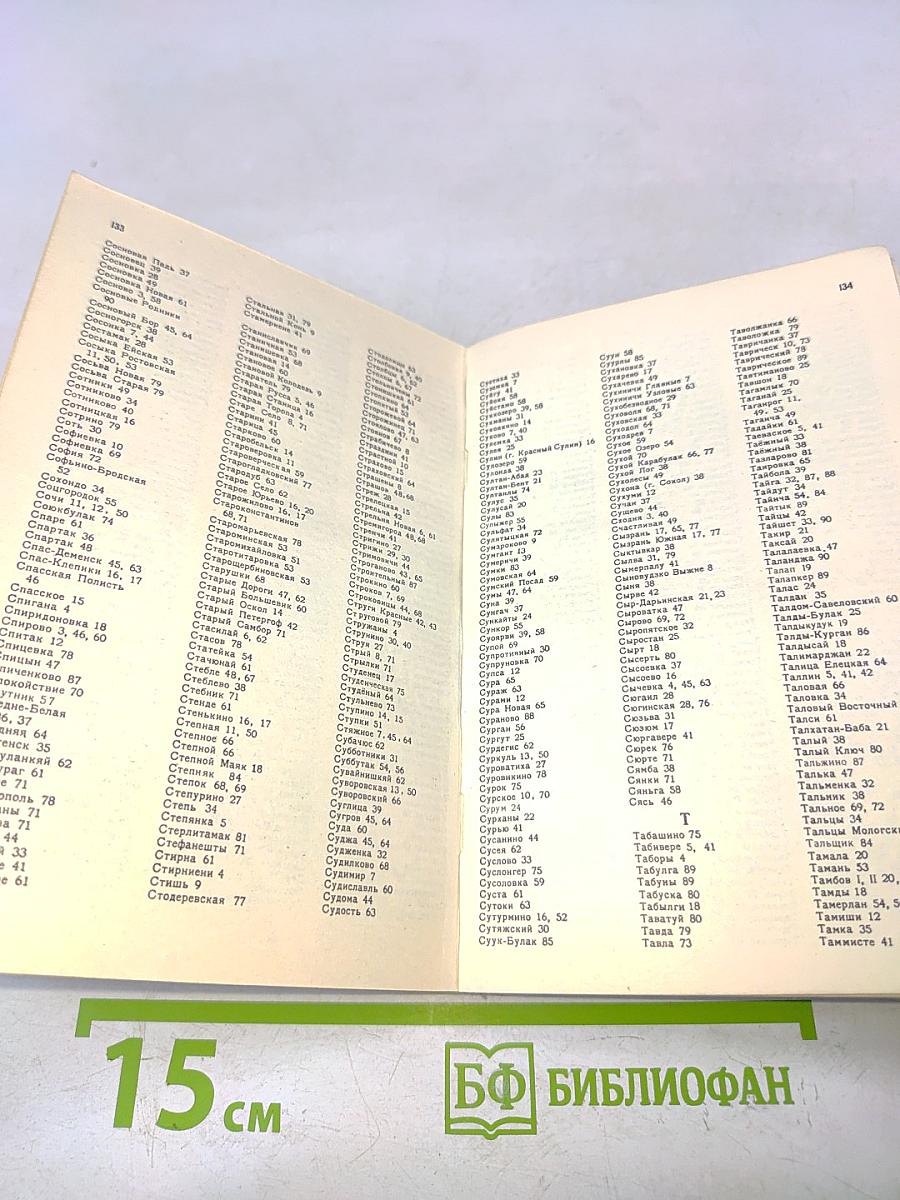 133
Сосновая Падь 37
Сосновец 39
Сосновка 28
Сосновка 49
Сосновка Новая 61
Сосново 3, 58
Сосновые Родники
90
Сосновый Бор 45, 64
Сосногорск 38
Сосонка 7, 44
Состамак 28
Сосыка Ейская 53
Сосыка Ростовская
11, 50, 53
Сосьва Новая 79
Сосьва Старая 79
Сотники 49
Сотниково 34
Сотниково 40
Сотницкая 16
Сотрино 79
Соть 30
Софиевка 10
Софиевка 69
София 72
Софьино-Бродская
52
Сохондо 34
Соцгородок 55
Сочи 11, 12, 50
Союкбулак 74
Спаре 61
Спартак 36
Спартак 48
Спас-Деменск 45, 63
Спас-Клепики 16, 17
Спасская Полисть
46
Спасское 15
Спигана 4
Спиридоновка 18
Спирово 3, 46, 60
Спитак 12
Спицевка 78
Спицын 47
Стальная 31, 79
Стальной Конь 9
Стамериене 41
Станиславчик 69
Станичная 53
Станишевка 68
Становая 14
Становое 60
Становой Колодезь 9
Старатель 79
Старая Русса 5, 46
Старая Станица 16
Старая Торопа 4
Старе Село 8, 71
Старини 41
Старица 45
Старково 60
Старобельск 14
Староверовка 11
Староверческая 59
Старогладковский 77
Стародуб 63
Старое Село 62
Старое Юрьево 16, 20
Старожилово 16, 17
Староконстантинов
68, 71
Старомарьевская 78
Староминская 53
Старомихайловка 51
Старотитаровка 53
Старощербиновская 53
Старушки 68
Старые Дороги 47, 62
Старый Большевик 60
Старый Оскол 14
Старый Петергоф 42
Старый Самбор 71
Стасилай 6, 62
Стасов 78
Статейка 54
Стачюнай 61
Стебле 48, 67
Стеблево 38
Стебник 71
Стенде 61
Стенькино 16, 17
Степная 11, 50
Степное 66
Степной 66
Степной Маяк 18
Степняк 84
Степок 68, 69
Степурино 27
Степь 34
Степянка 5
Стерлитамак 81
Стефанешты 71
Стирна 61
Стирниени 4
Стишь 9
Стодеревская 77
Сторожинец 71
Стояново 67
Стоянов 8
Страбичово 41
Страдечь 10
Страхово 15
Страховский 64
Страшены 8
Стрелецкая 15
Стрельна 42
Стрельна Новая 6, 61
Стремигород 48, 68
Стренчи 41
Стригино 27
Стрижи 29, 30
Стримовичи 44
Строганово 43, 65
Строительный 87
Строкино 60
Строков 7, 69
Строковицы 44, 68
Струги Красные 42, 43
Струговой 79
Стружаны 4
Струнино 30, 40
Струя 27
Стрый 8, 71
Стрылки 71
Студенец 17
Студенческая 75
Студёный 64
Стульнево 73
Ступино 14, 15
Ступки 51
Стяжное 7, 45, 64
Субачюс 62
Субботники 31
Суббутак 54, 56
Сувайнишкяй 62
Суворовская 13, 50
Суворовский 66
Суглица 39
Сугров 45, 64
Суда 60
Суджа 45, 64
Судженка 32
Судилково 68
Судимир 7
Судиславль 60
Судома 44
Судость 63
134
Суетиха 33
Суземка 7
Суйгу 41
Суйеки 58
Суйстамо 58
Суккозеро 39, 58
Сукманы 31
Суковкино 14
Суково 7, 40
Сулемка 33
Сулея 25
Сулин (г. Красный Сулин) 16
Сулозеро 59
Сулонда 38
Султан-Абад 23
Султан-Бент 21
Султанлы 74
Сулус 35
Сулусай 20
Сулы 83
Сулыжер 55
Сульфат 34
Сулятыцкая 72
Сумароково 9
Сумгаит 13
Сумеричи 39
Сумки 83
Сумовская 64
Сумский Посад 59
Сумы 47, 64
Суна 39
Сунгач 37
Сункайты 24
Сункор 55
Суоярви 39, 58
Супой 69
Супротивный 30
Супруновка 70
Супса 12
Сура 65
Сураж 63
Сурами 12
Сура Новая 65
Сураново 88
Сурган 56
Сургут 25
Сурдегис 62
Суркуль 13, 50
Суроватиха 27
Суровикино 78
Сурок 75
Сурское 10, 70
Сурум 24
Сурханы 22
Сурью 41
Сусанино 44
Сусея 62
Суслово 33
Суслонгер 75
Сусоловка 59
Суста 61
Сутоки 63
Сутурмино 16, 52
Сутяжский 30
Суук-Булак 85
Суун 58
Суурлы 85
Сухановка 37
Сухарево 17
Сухачевка 49
Сухиничи Главные 7
Сухиничи Узловые 63
Сухобезводное 29
Суховоля 68, 71
Суховская 33
Суходол 64
Суходрев 7
Сухое 59
Сухое Озеро 54
Сухой 70
Сухой Карабулак 66, 77
Сухой Лог 38
Сухолесы 49
Сухона (г. Сокол) 38
Сухуми 12
Сучан 37
Сущево 44
Сходня 3, 40
Счастливая 49
Сызрань 17, 65, 77
Сызрань Южная 17, 77
Сыктывкар 38
Сылва 31, 79
Сымерпалу 41
Сыновудзко Выжне 8
Сыня 38
Сырве 42
Сыр-Дарьинская 21, 23
Сыроватка 47
Сырово 69, 72
Сыропятское 32
Сыростан 25
Сырт 18
Сысерть 80
Сысоевка 37
Сысоево 16
Сычевка 4, 45, 63
Сюгаил 28
Сюгинская 28, 76
Сюзьва 31
Сюзюм 17
Сюргавере 41
Сюрек 76
Сюрте 71
Сямба 38
Сянки 71
Сяньга 58
Сясь 46
Т
Табашино 75
Табивере 5, 41
Таборы 4
Табулга 89
Табуны 89
Табуска 80
Табылги 18
Таватуй 80
Тавда 79
Тавла 73
Таволжанка 66
Таволожка 79
Тавричанка 37
Таврическ 10, 73
Таврический 78
Таврическое 89
Тавтиманово 25
Тавшон 18
Тагамлык 70
Таганай 25
Таганрог 11,
49, 53
Таганча 49
Тадайки 61
Таеваское 5, 41
Таёжный 33
Таёжный 38
Тазларово 81
Таировка 65
Тайбола 39
Тайга 32, 87, 88
Тайдут 34
Тайнча 54, 84
Тайтык 89
Тайцы 42
Тайшет 33, 90
Такир 21
Таксай 20
Талалаевка 47
Таланджа 90
Талап 19
Талапкер 89
Талас 24
Талдан 35
Талдом-Савеловский 60
Талды-Булак 25
Талдыкудук 19
Талды-Курган 86
Талдысай 18
Талимарджан 22
Талица Елецкая 64
Таллин 5, 41, 42
Таловая 66
Таловка 34
Таловый Восточный
Талси 61
Талхатан-Баба 21
Талый 38
Талый Ключ 80
Тальжино 87
Талька 47
Тальменка 32
Тальник 38
Тальное 69, 72
Тальцы 34
Тальцы Мологские
Тальщик 84
Тамала 20
Тамань 53
Тамбов I, II 20,
Тамды 18
Тамерлан 54, 5
Тамиши 12
Тамка 35
Таммисте 41
15 см
БФ БИБЛИОФАН